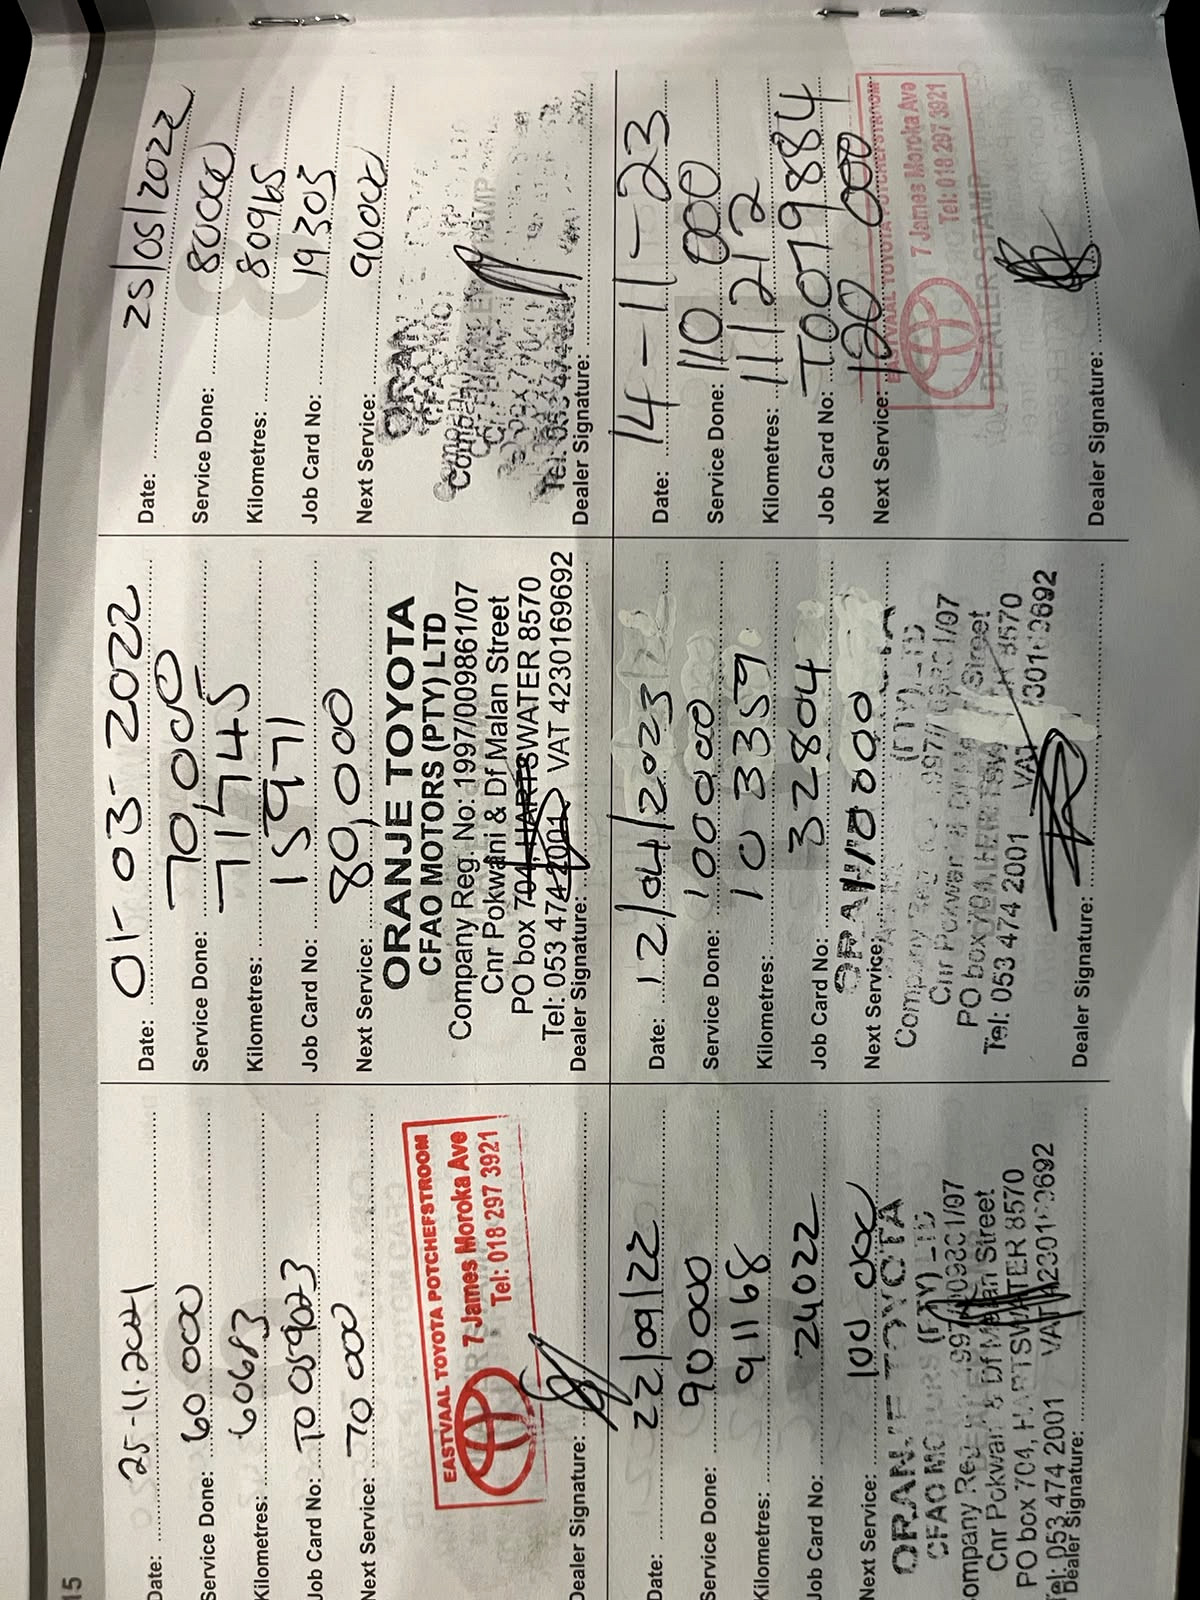 15
Date: 25-11-2021
Service Done: 60 000
Kilometres: 60683
Job Card No: T0059023
Next Service: 70 000
EASTVAAL TOYOTA POTCHEFSTROOM
7 James Moroka Ave
Tel: 018 297 3921
Dealer Signature:
Date: 01-03-2022
Service Done: 70,000
Kilometres: 71745
Job Card No: 15971
Next Service: 80,000
ORANJE TOYOTA
CFAO MOTORS (PTY) LTD
Company Reg. No: 1997/009861/07
Cnr Pokwani & Df Malan Street
PO box 704, HARTSWATER 8570
Tel: 053 474 2001 VAT 4230169692
Dealer Signature:
Date: 25/05/2022
Service Done: 80000
Kilometres: 80965
Job Card No: 19303
Next Service: 90000
Dealer Signature:
Date: 22/09/22
Service Done: 90 000
Kilometres: 91168
Job Card No: 24022
Next Service: 100 000
ORANJE TOYOTA
CFAO MOTORS (PTY) LTD
Cnr Pokwani & Df Malan Street
PO box 704, HARTSWATER 8570
Tel: 053 474 2001
Dealer Signature:
Date: 12/04/2023
Service Done: 100000
Kilometres: 103359
Job Card No: 32804
Next Service: 110000
Company Reg
Cnr Pokwani & Df Street
PO box 704 8570
Tel: 053 474 2001 VAT
Dealer Signature:
Date: 14-11-23
Service Done: 110 000
Kilometres: 111212
Job Card No: T0079884
Next Service: 120 000
EASTVAAL TOYOTA POTCHEFSTROOM
7 James Moroka Ave
Tel: 018 297 3921
DEALER STAMP
Dealer Signature: